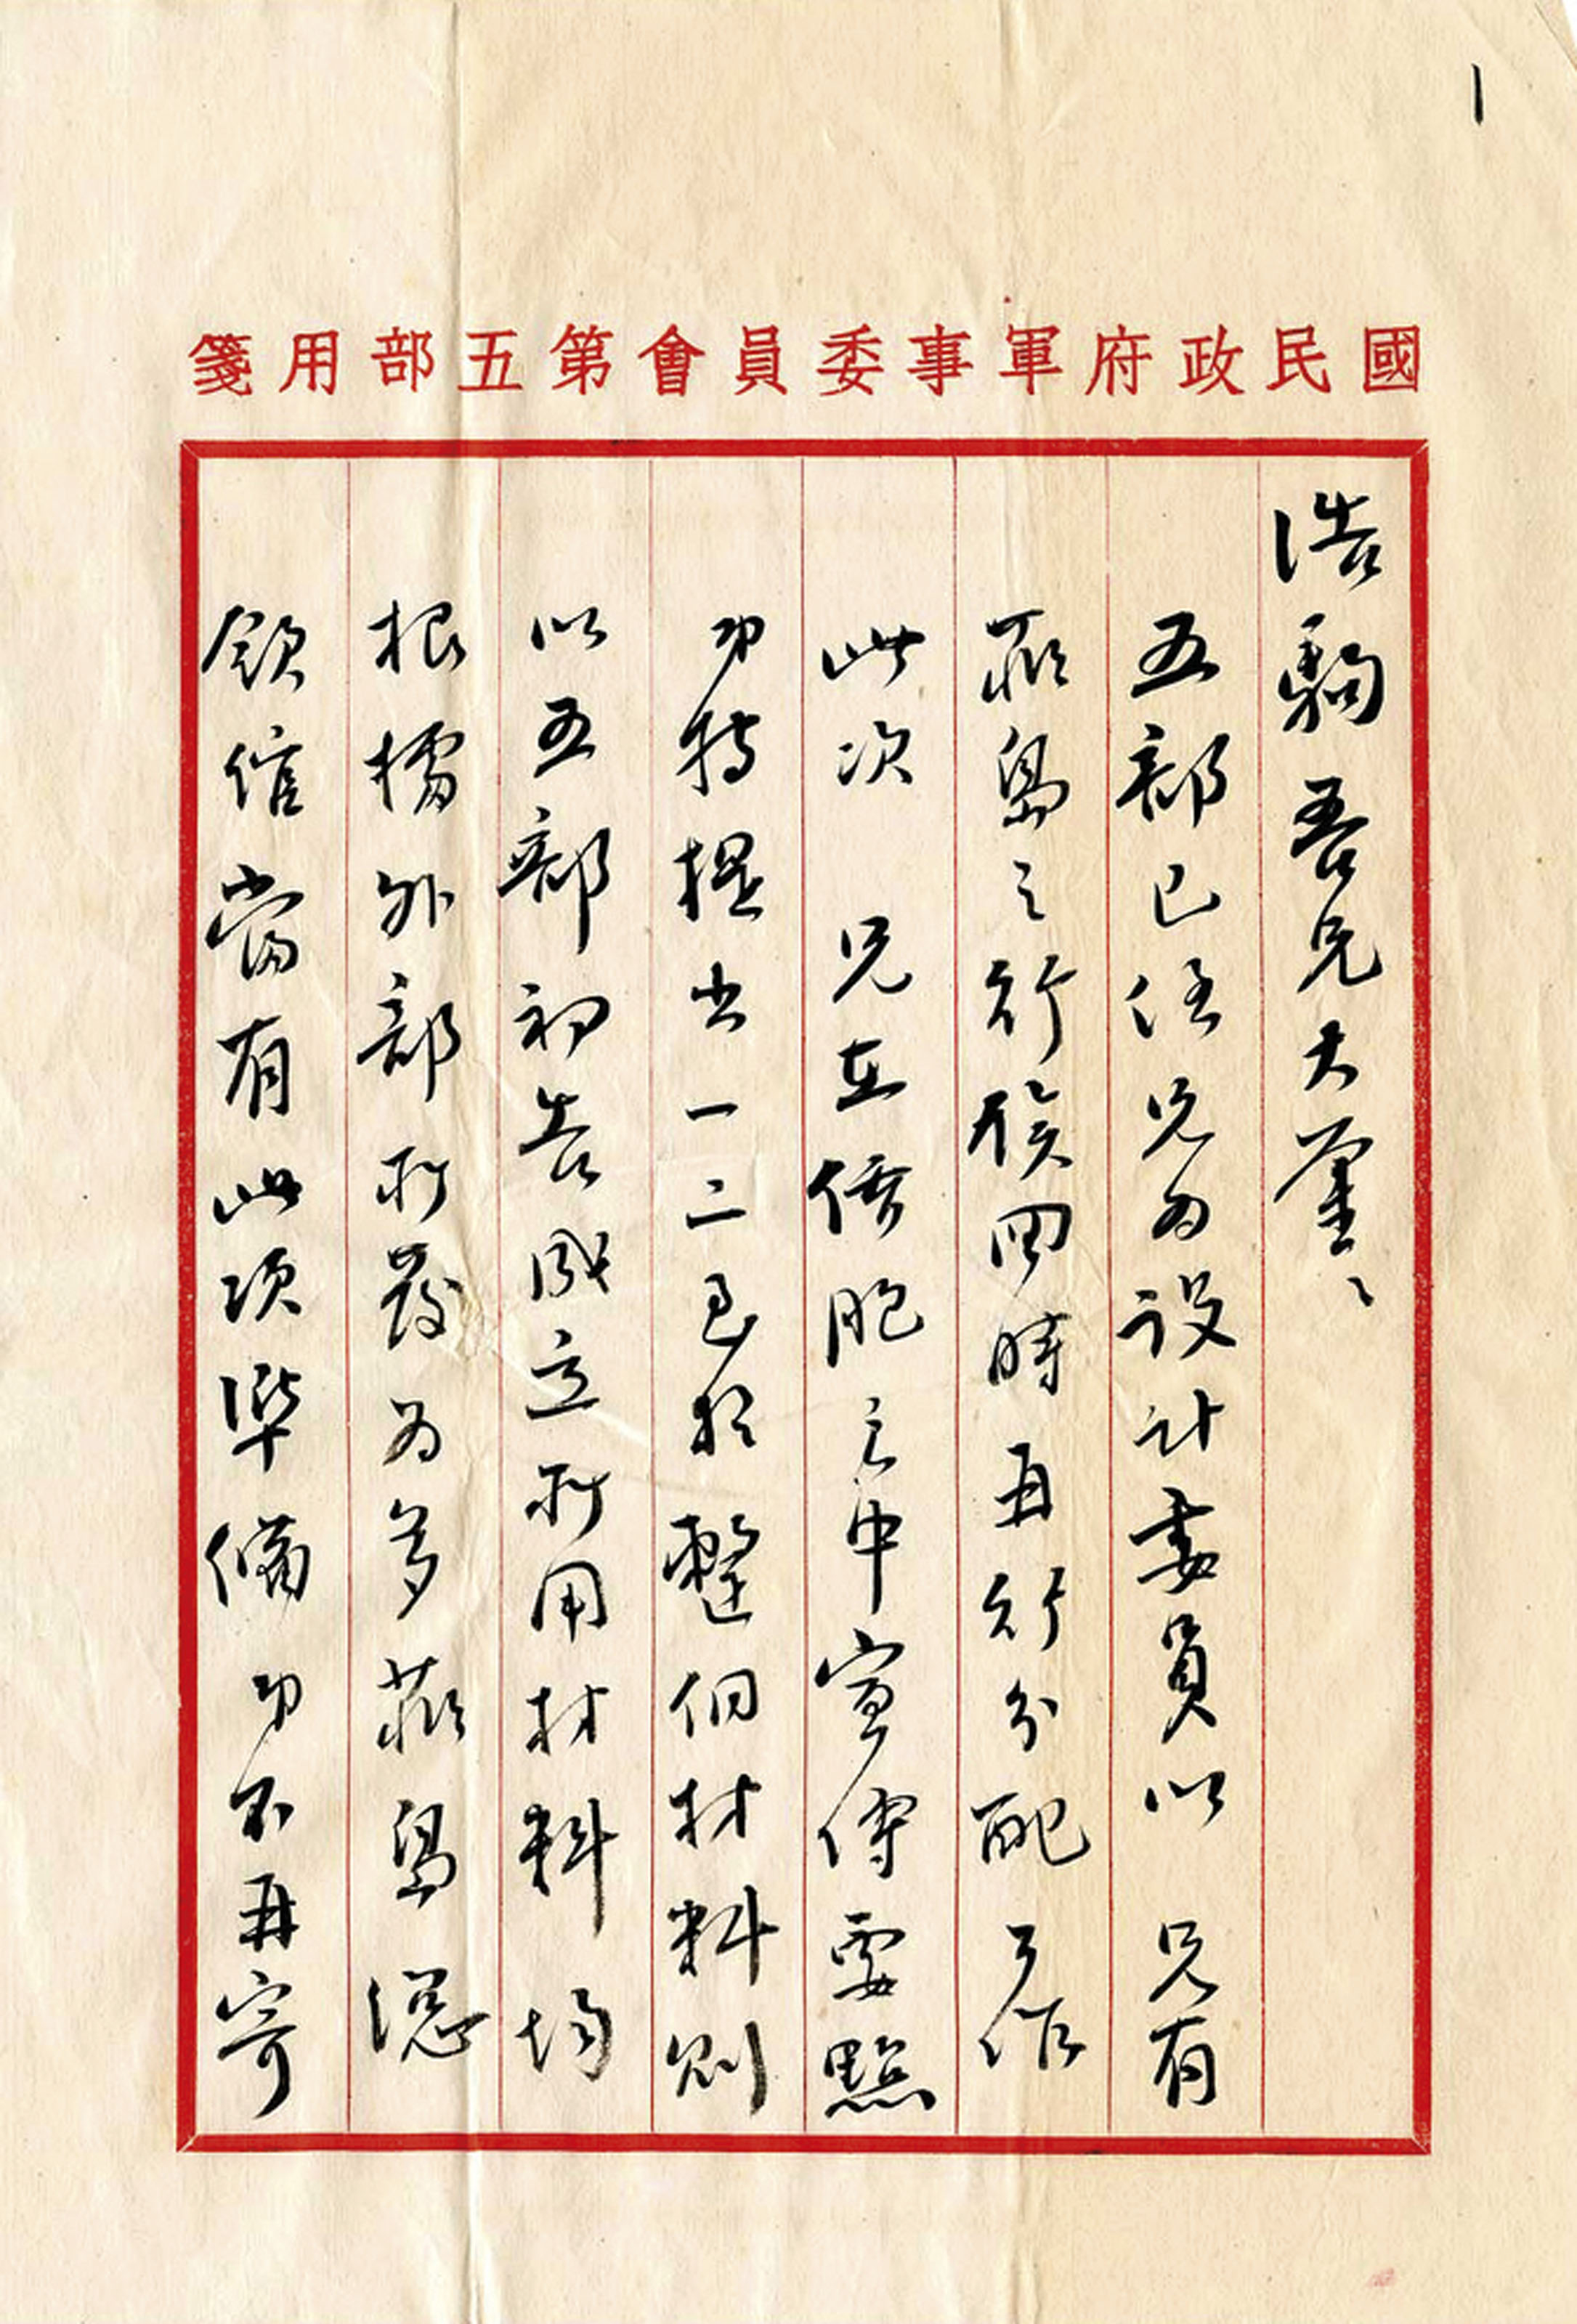 國民政府軍事委員會第五部用箋
浩駒吾兄大鑒、
五部已任兄為設計委員以　兄有
菲島之行俟回時再行分配工作
此次　兄在僑胞之中宣傳要點
弟特提出一二至於整個材料則
以五部初告成立所用材料均
根據外部所發為多菲島總
領館當有此項準備弟不再寄